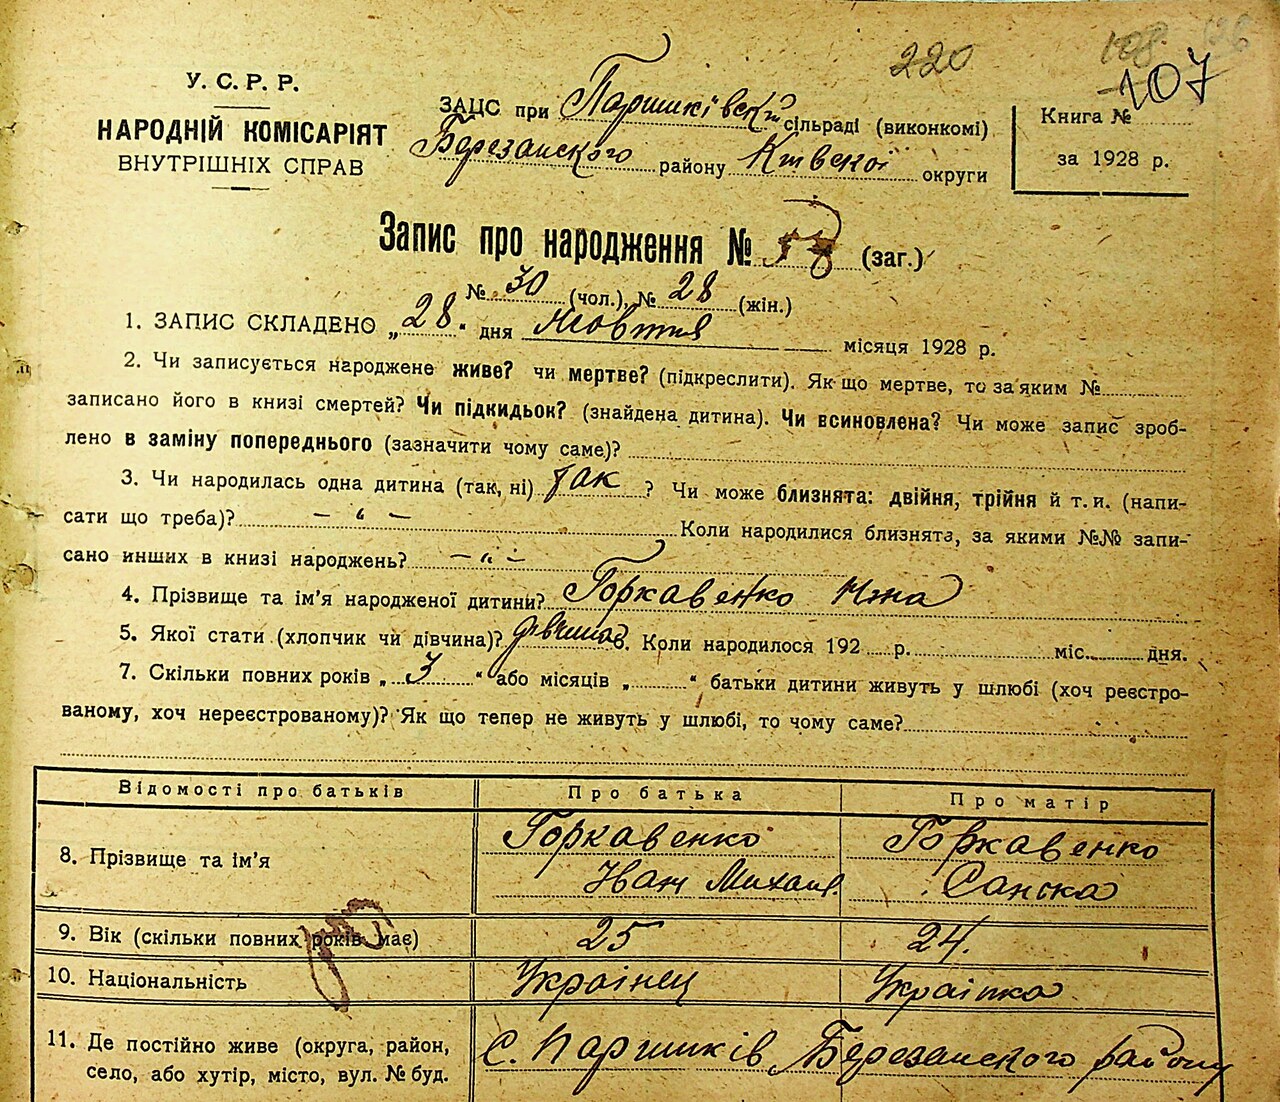 220
108
107
У. С. Р. Р.
НАРОДНІЙ КОМІСАРІЯТ
ВНУТРІШНІХ СПРАВ
ЗАЦС при Паришківській сільраді (виконкомі)
Березанского району Київскої округи
Книга №
за 1928 р.
Запис про народження № 58 (заг.)
№ 30 (чол.), № 28 (жін.)
1. ЗАПИС СКЛАДЕНО „28“ дня Жовтня місяця 1928 р.
2. Чи записується народжене живе? чи мертве? (підкреслити). Як що мертве, то за яким №
записано його в книзі смертей? Чи підкидьок? (знайдена дитина). Чи всиновлена? Чи може запис зроб-
лено в заміну попереднього (зазначити чому саме)?
3. Чи народилась одна дитина (так, ні) так? Чи може близнята: двійня, трійня й т. и. (напи-
сати що треба)? — “ — Коли народилися близнята, за якими №№ запи-
сано инших в книзі народжень? — “ —
4. Прізвище та ім’я народженої дитини? Горкавенко Ніна
5. Якої стати (хлопчик чи дівчина)? дівчина 6. Коли народилося 192 р. міс. дня.
7. Скільки повних років „3“ або місяців „ “ батьки дитини живуть у шлюбі (хоч реєстро-
ваному, хоч нереєстрованому)? Як що тепер не живуть у шлюбі, то чому саме?
Відомості про батьків Про батька Про матір
8. Прізвище та ім’я Горкавенко Горкавенко
Іван Михаил. Санька
9. Вік (скільки повних років має) 25 24.
10. Національність Украінец Украінка
11. Де постійно живе (округа, район, С. Паришків Березанского району
село, або хутір, місто, вул. № буд.